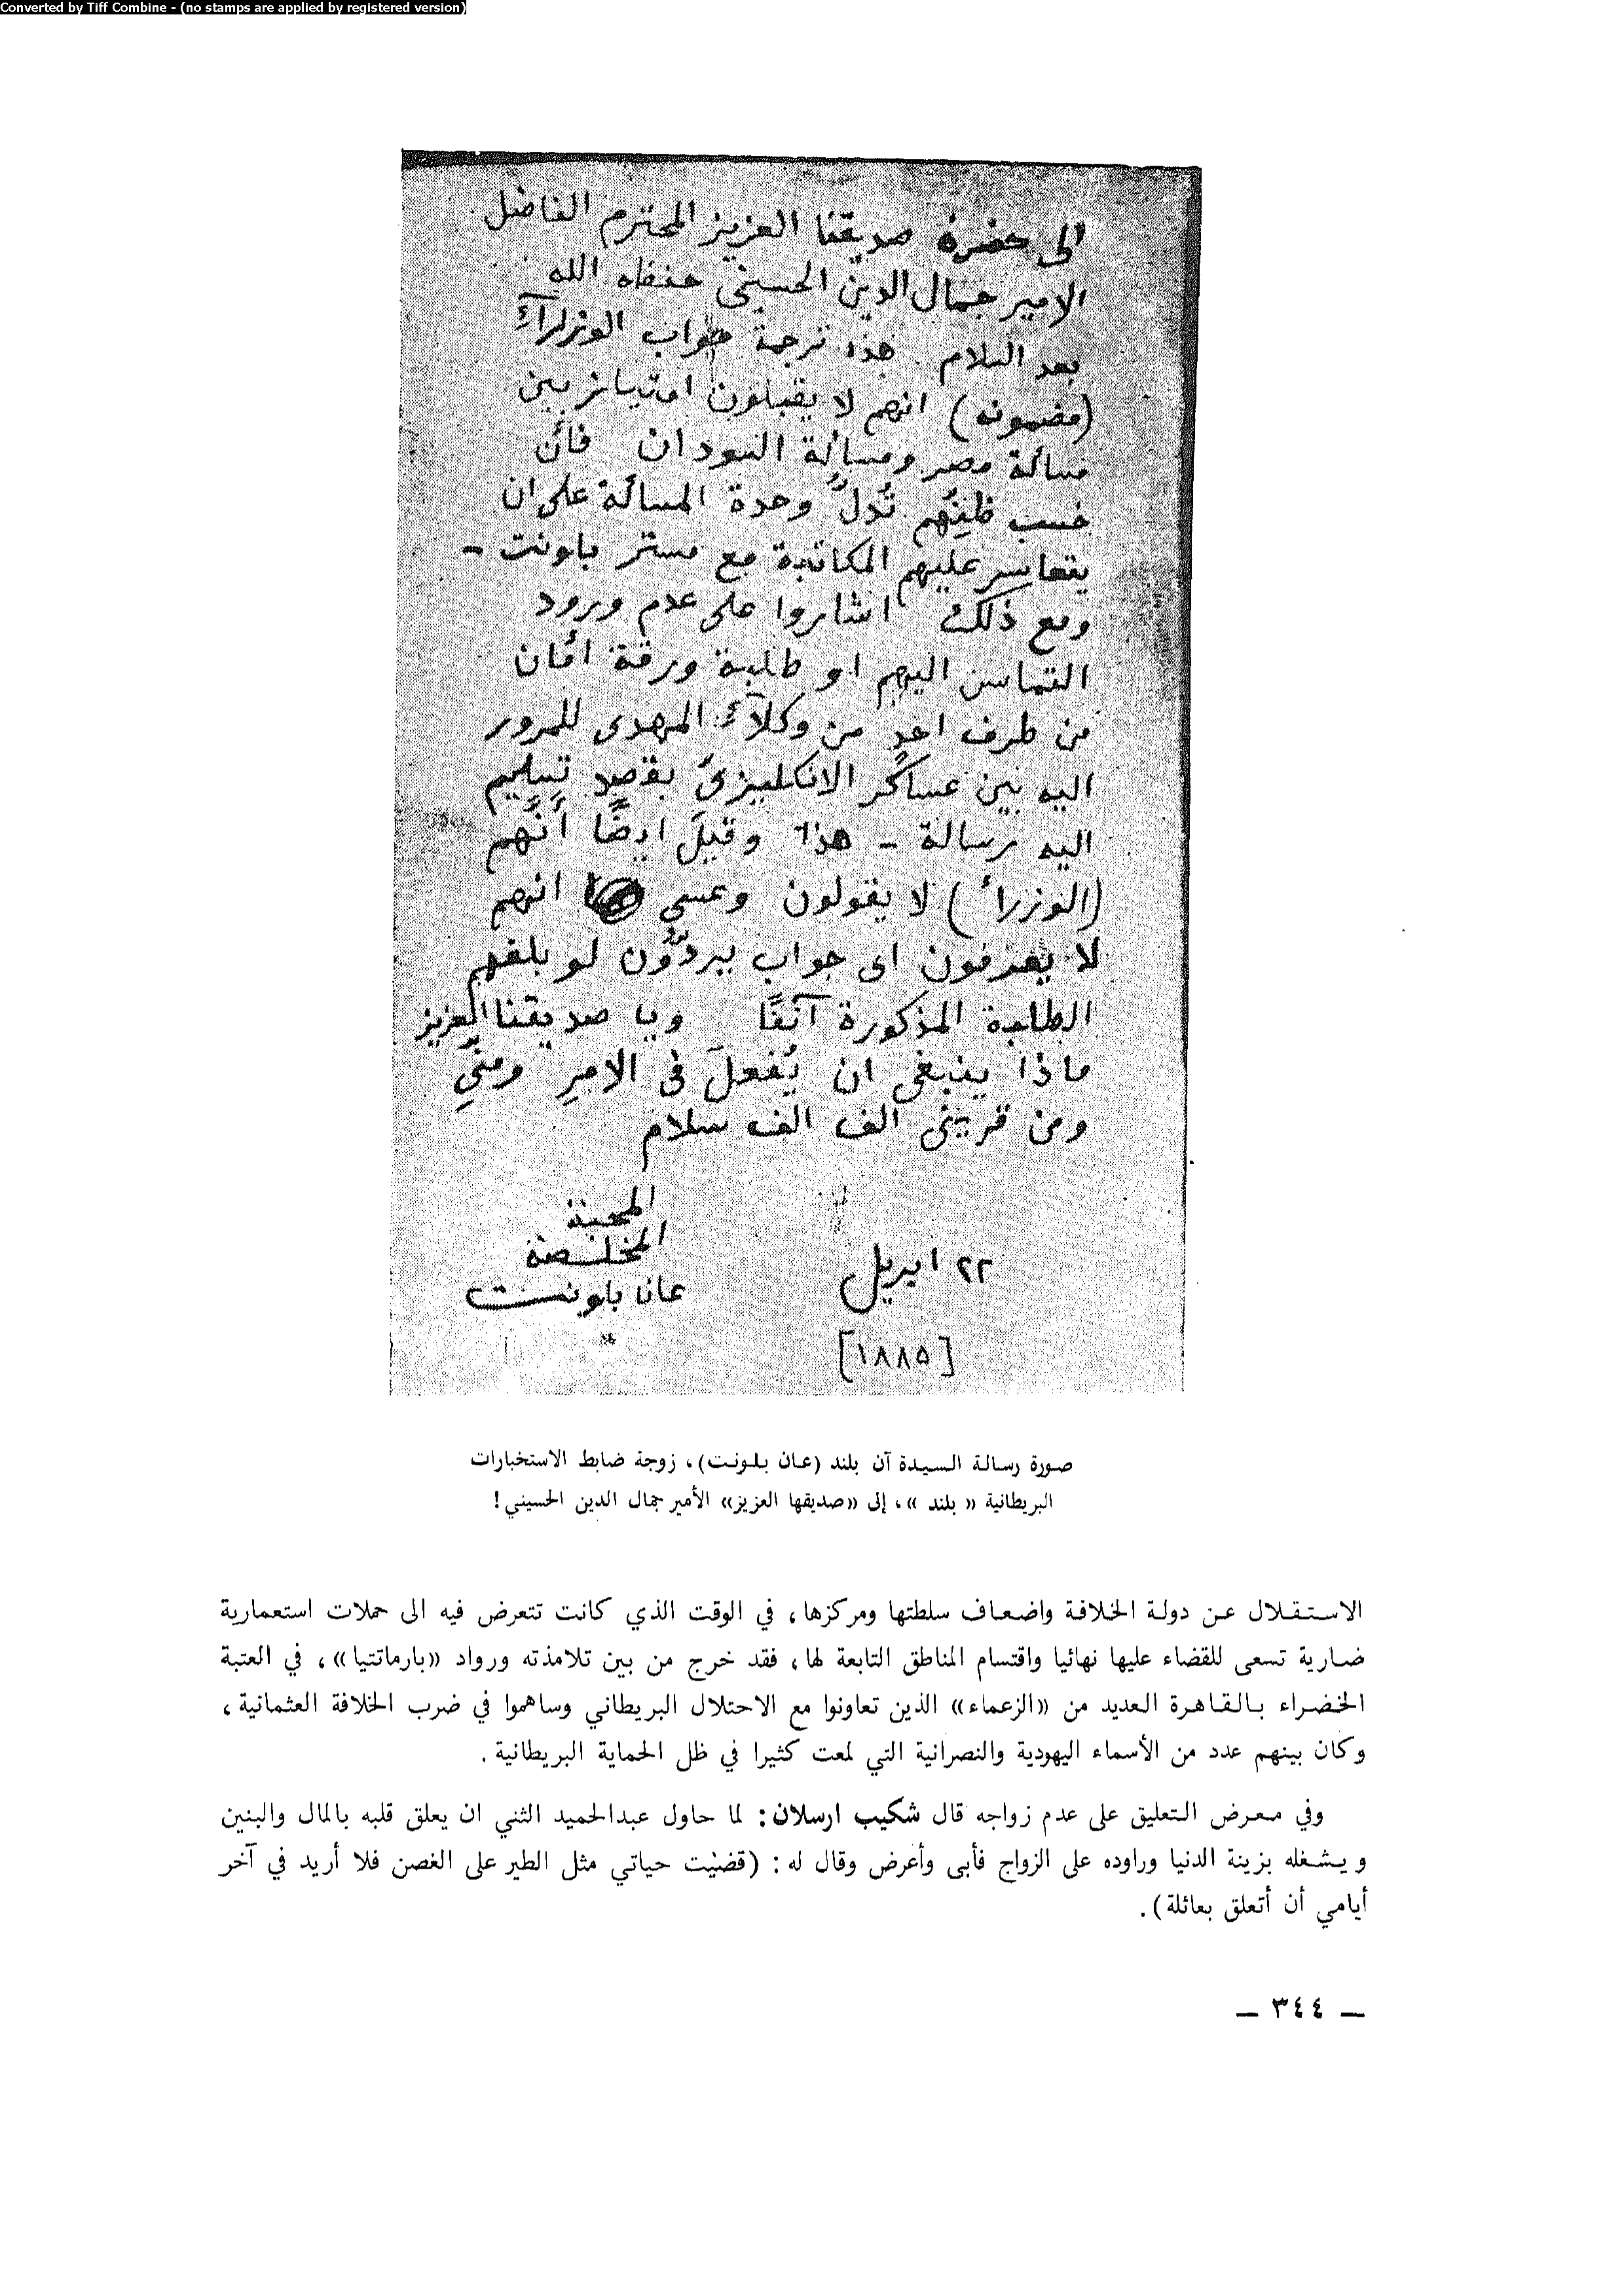 Converted by Tiff Combine - (no stamps are applied by registered version)
الى حضرة صديقنا العزيز المحترم الفاضل
الامير جمال الدين الحسيني حفظه الله
بعد السلام هذه ترجمة جواب الوزرآء
(مضمونه) انهم لا يقبلون امتياز بين
مسألة مصر ومسألة السودان فأن
حسب ظنهم تدل وحدة المسألة على ان
يتعاسر عليهم المكاتبة مع مستر بلونت -
ومع ذلك اشاروا على عدم ورود
التماس اليهم او طلبة ورقة امان
من طرف احد من وكلآء المهدى للمرور
اليه بين عساكر الانكليزى بقصد تسليم
اليه رسالة - هذا وقيل ايضا أنهم
(الوزراء) لا يقولون وعسى انهم
لا يعرفون اى جواب يردون لو بلغهم
الطلبة المذكورة آنفا ويا صديقنا العزيز
ماذا ينبغى ان يُفعل فى الامر ومنّي
ومن قرينى الف الف سلام
المحبة
المخلصة
٢٢ ابريل عانا بلونت
[١٨٨٥]
صورة رسالة السيدة آن بلند (عان بلونت)، زوجة ضابط الاستخبارات
البريطانية « بلند »، إلى «صديقها العزيز» الأمير جمال الدين الحسيني!
الاستقلال عن دولة الخلافة واضعاف سلطتها ومركزها، في الوقت الذي كانت تتعرض فيه الى حملات استعمارية
ضارية تسعى للقضاء عليها نهائيا واقتسام المناطق التابعة لها، فقد خرج من بين تلامذته ورواد «بارماتتيا»، في العتبة
الخضراء بالقاهرة العديد من «الزعماء» الذين تعاونوا مع الاحتلال البريطاني وساهموا في ضرب الخلافة العثمانية،
وكان بينهم عدد من الأسماء اليهودية والنصرانية التي لمعت كثيرا في ظل الحماية البريطانية.
وفي معرض التعليق على عدم زواجه قال شكيب ارسلان: لما حاول عبدالحميد الثني ان يعلق قلبه بالمال والبنين
ويشغله بزينة الدنيا وراوده على الزواج فأبى وأعرض وقال له: (قضيت حياتي مثل الطير على الغصن فلا أريد في آخر
أيامي أن أتعلق بعائلة).
— ٣٤٤ —